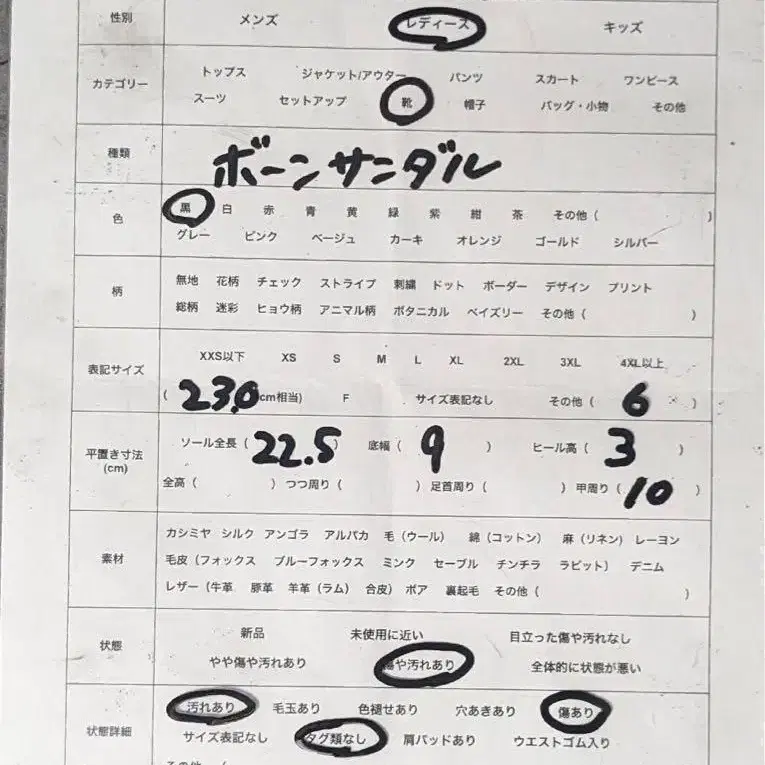 性別 メンズ レディース キッズ
カテゴリー トップス ジャケット/アウター パンツ スカート ワンピース
スーツ セットアップ 靴 帽子 バッグ・小物 その他
種類 ボーンサンダル
色 黒 白 赤 青 黄 緑 紫 紺 茶 その他( )
グレー ピンク ベージュ カーキ オレンジ ゴールド シルバー
柄 無地 花柄 チェック ストライプ 刺繍 ドット ボーダー デザイン プリント
総柄 迷彩 ヒョウ柄 アニマル柄 ボタニカル ペイズリー その他( )
表記サイズ XXS以下 XS S M L XL 2XL 3XL 4XL以上
( 23.0cm相当) F サイズ表記なし その他( 6 )
平置き寸法 (cm) ソール全長( 22.5 ) 底幅( 9 ) ヒール高( 3 )
全高( ) つつ周り( ) 足首周り( ) 甲周り( 10 )
素材 カシミヤ シルク アンゴラ アルパカ 毛(ウール) 綿(コットン) 麻(リネン) レーヨン
毛皮(フォックス ブルーフォックス ミンク セーブル チンチラ ラビット) デニム
レザー(牛革 豚革 羊革(ラム) 合皮) ボア 裏起毛 その他( )
状態 新品 未使用に近い 目立った傷や汚れなし
やや傷や汚れあり 傷や汚れあり 全体的に状態が悪い
状態詳細 汚れあり 毛玉あり 色褪せあり 穴あきあり 傷あり
サイズ表記なし タグ類なし 肩パッドあり ウエストゴム入り